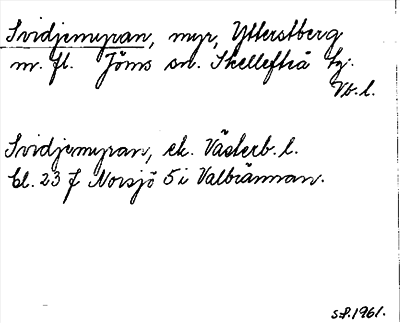 Svidjemyran, myr, Ytterstberg
m. fl. Jörns sn. Skellefteå tg.
Vb. l.
Svidjemyran, ek. Västerb. l.
bl. 23 f Norsjö 5 i Valbrännan.
S.P. 1961.